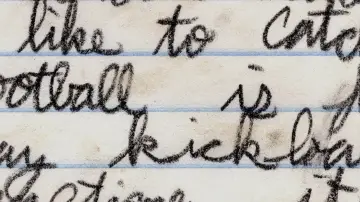 like to catc
ootball is f
ay kickba
it